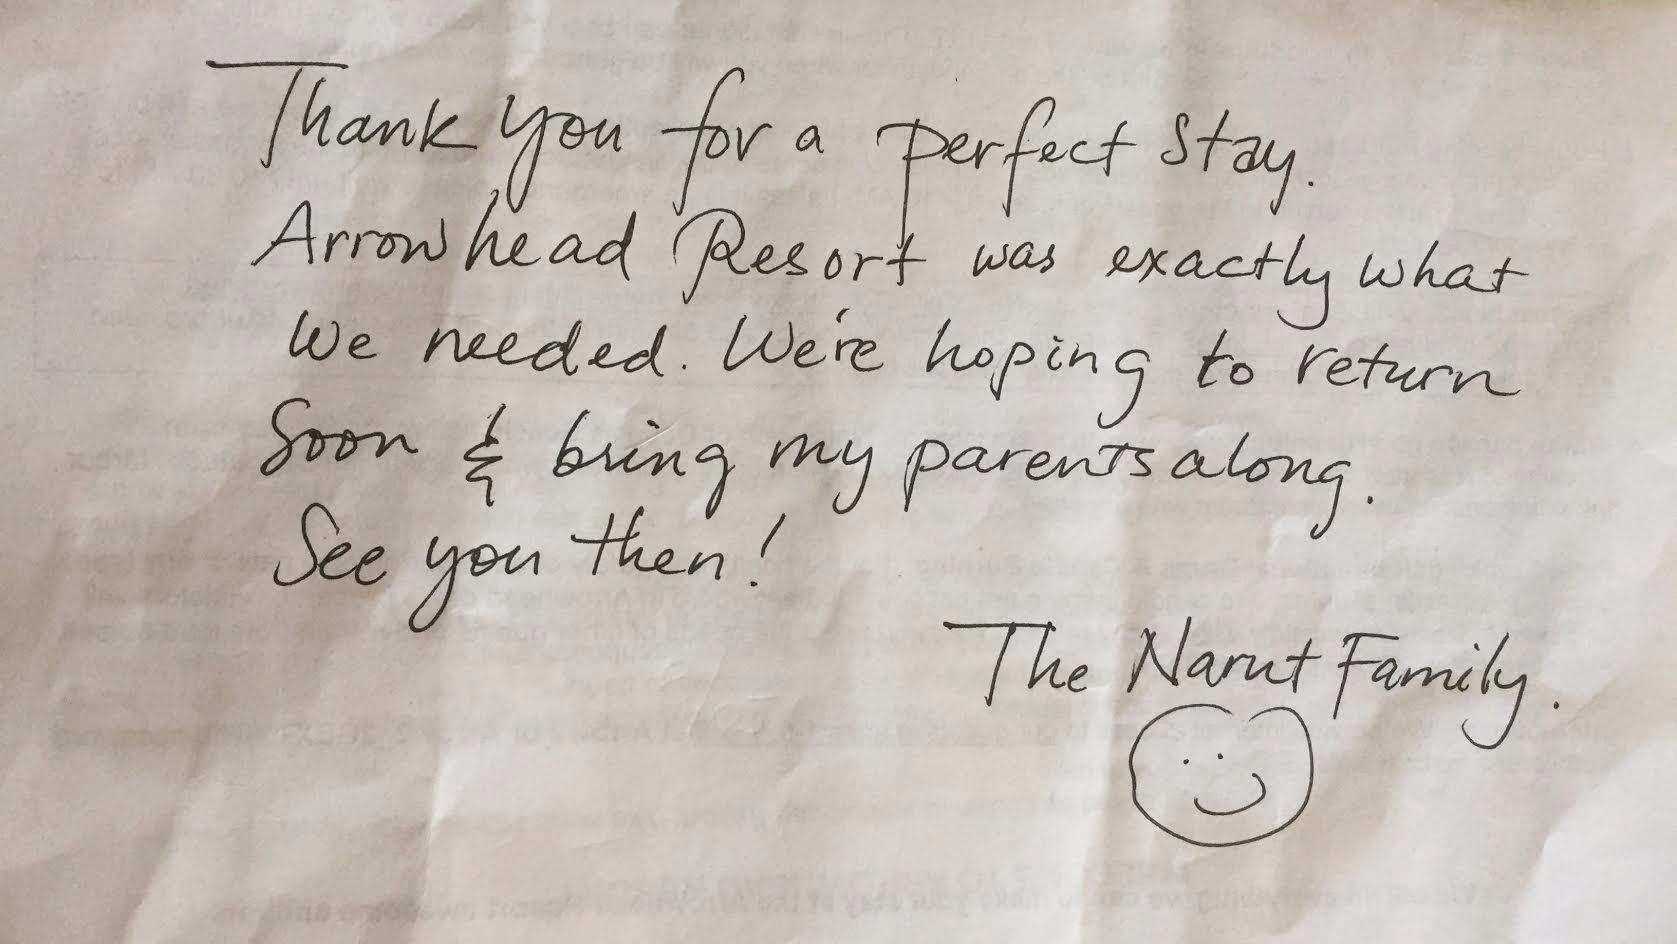 Thank you for a perfect stay.
Arrowhead Resort was exactly what
we needed. We're hoping to return
soon & bring my parents along.
See you then!
The Narut Family.